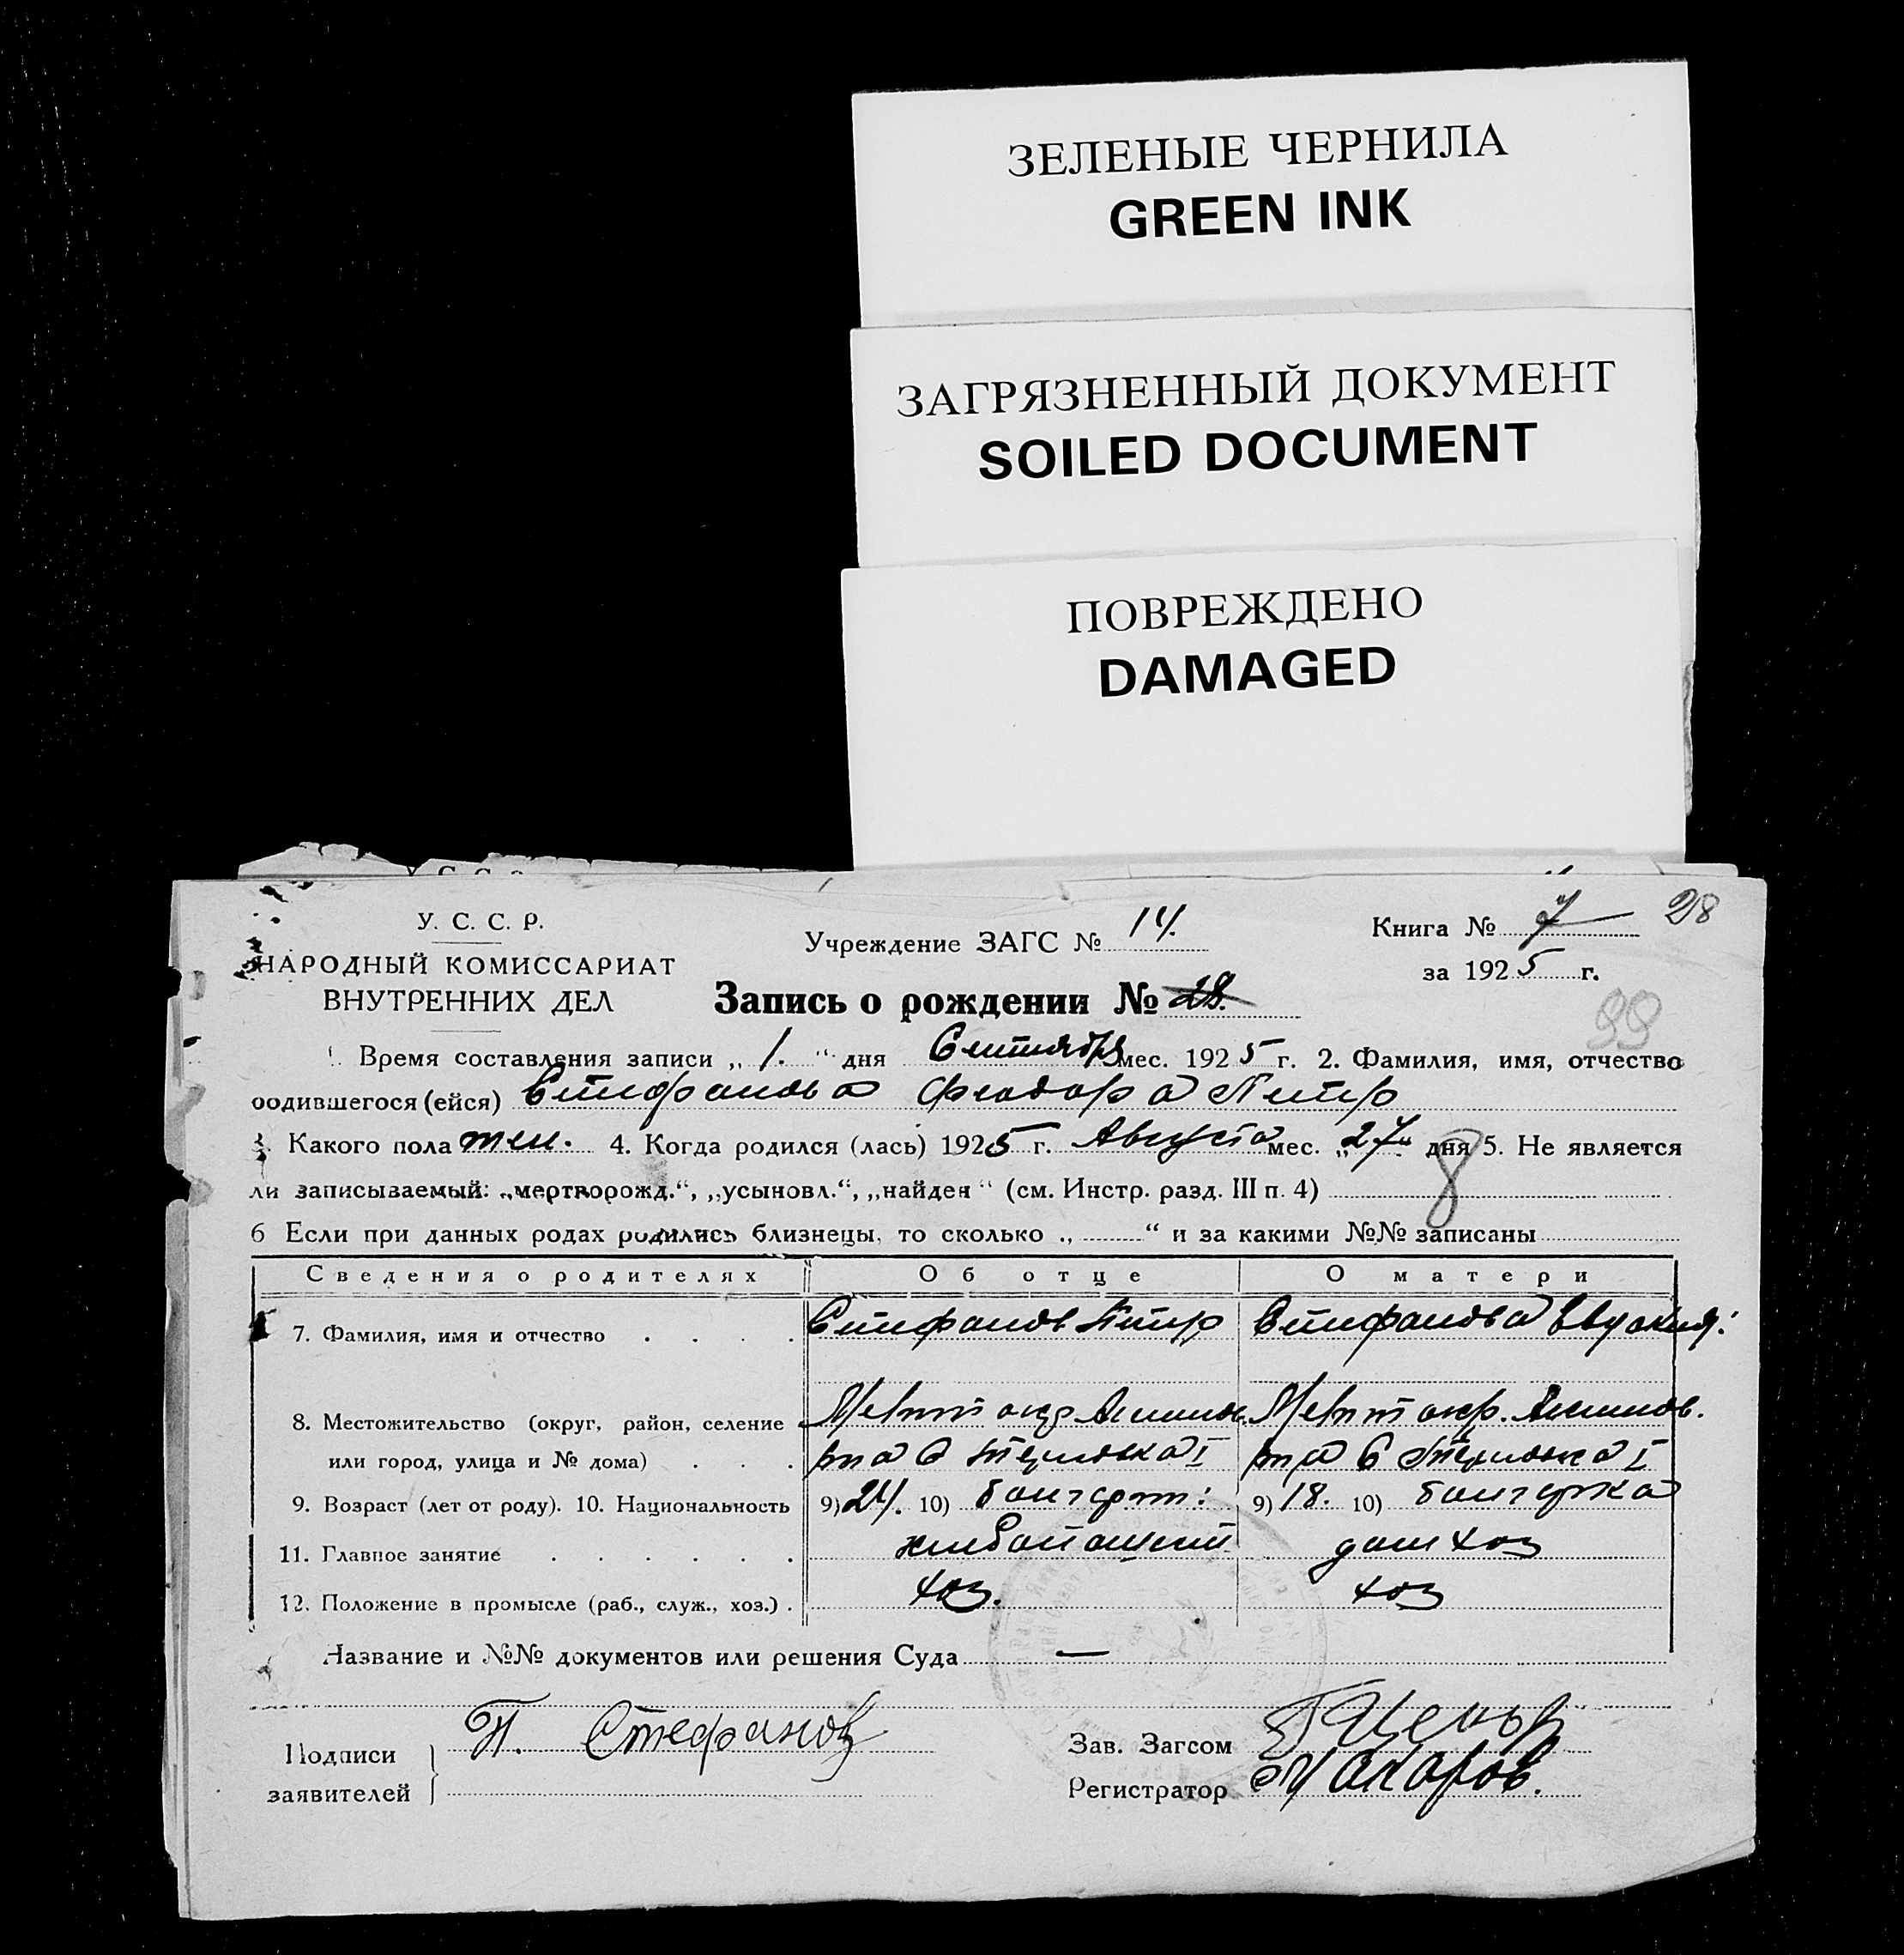 ЗЕЛЕНЫЕ ЧЕРНИЛА
GREEN INK
ЗАГРЯЗНЕННЫЙ ДОКУМЕНТ
SOILED DOCUMENT
ПОВРЕЖДЕНО
DAMAGED
У. С. С. Р.
НАРОДНЫЙ КОМИССАРИАТ
ВНУТРЕННИХ ДЕЛ
Учреждение ЗАГС № 14.
Книга № 7 28
за 1925 г.
99
Запись о рождении № 28.
Время составления записи „ 1. “ дня Сентября мес. 1925 г. 2. Фамилия, имя, отчество
родившегося (ейся) Стефанова Феодора Петр
3. Какого пола жен. 4. Когда родился (лась) 1925 г. Августа мес. „27“ дня 5. Не является
ли записываемый: „мертворожд.“, „усыновл.“, „найден“ (см. Инстр. разд. III п. 4) 8
6 Если при данных родах родились близнецы, то сколько „ “ и за какими №№ записаны
Сведения о родителях Об отце О матери
7. Фамилия, имя и отчество . . . . Стефанов Петр Стефанова Евдокия:
8. Местожительство (округ, район, селение Мелит окр Акимов. Мелит окр. Акимов.
или город, улица и № дома) . . . р-на С I р-на С I
9. Возраст (лет от роду). 10. Национальность 9) 24. 10) болгарин: 9) 18. 10) болгарка
11. Главное занятие . . . . . . хлебопашец дом хоз
12. Положение в промысле (раб., служ., хоз.) . хоз. хоз
Название и №№ документов или решения Суда —
Подписи
заявителей
П. Стефанов
Зав. Загсом
Регистратор Макаров.